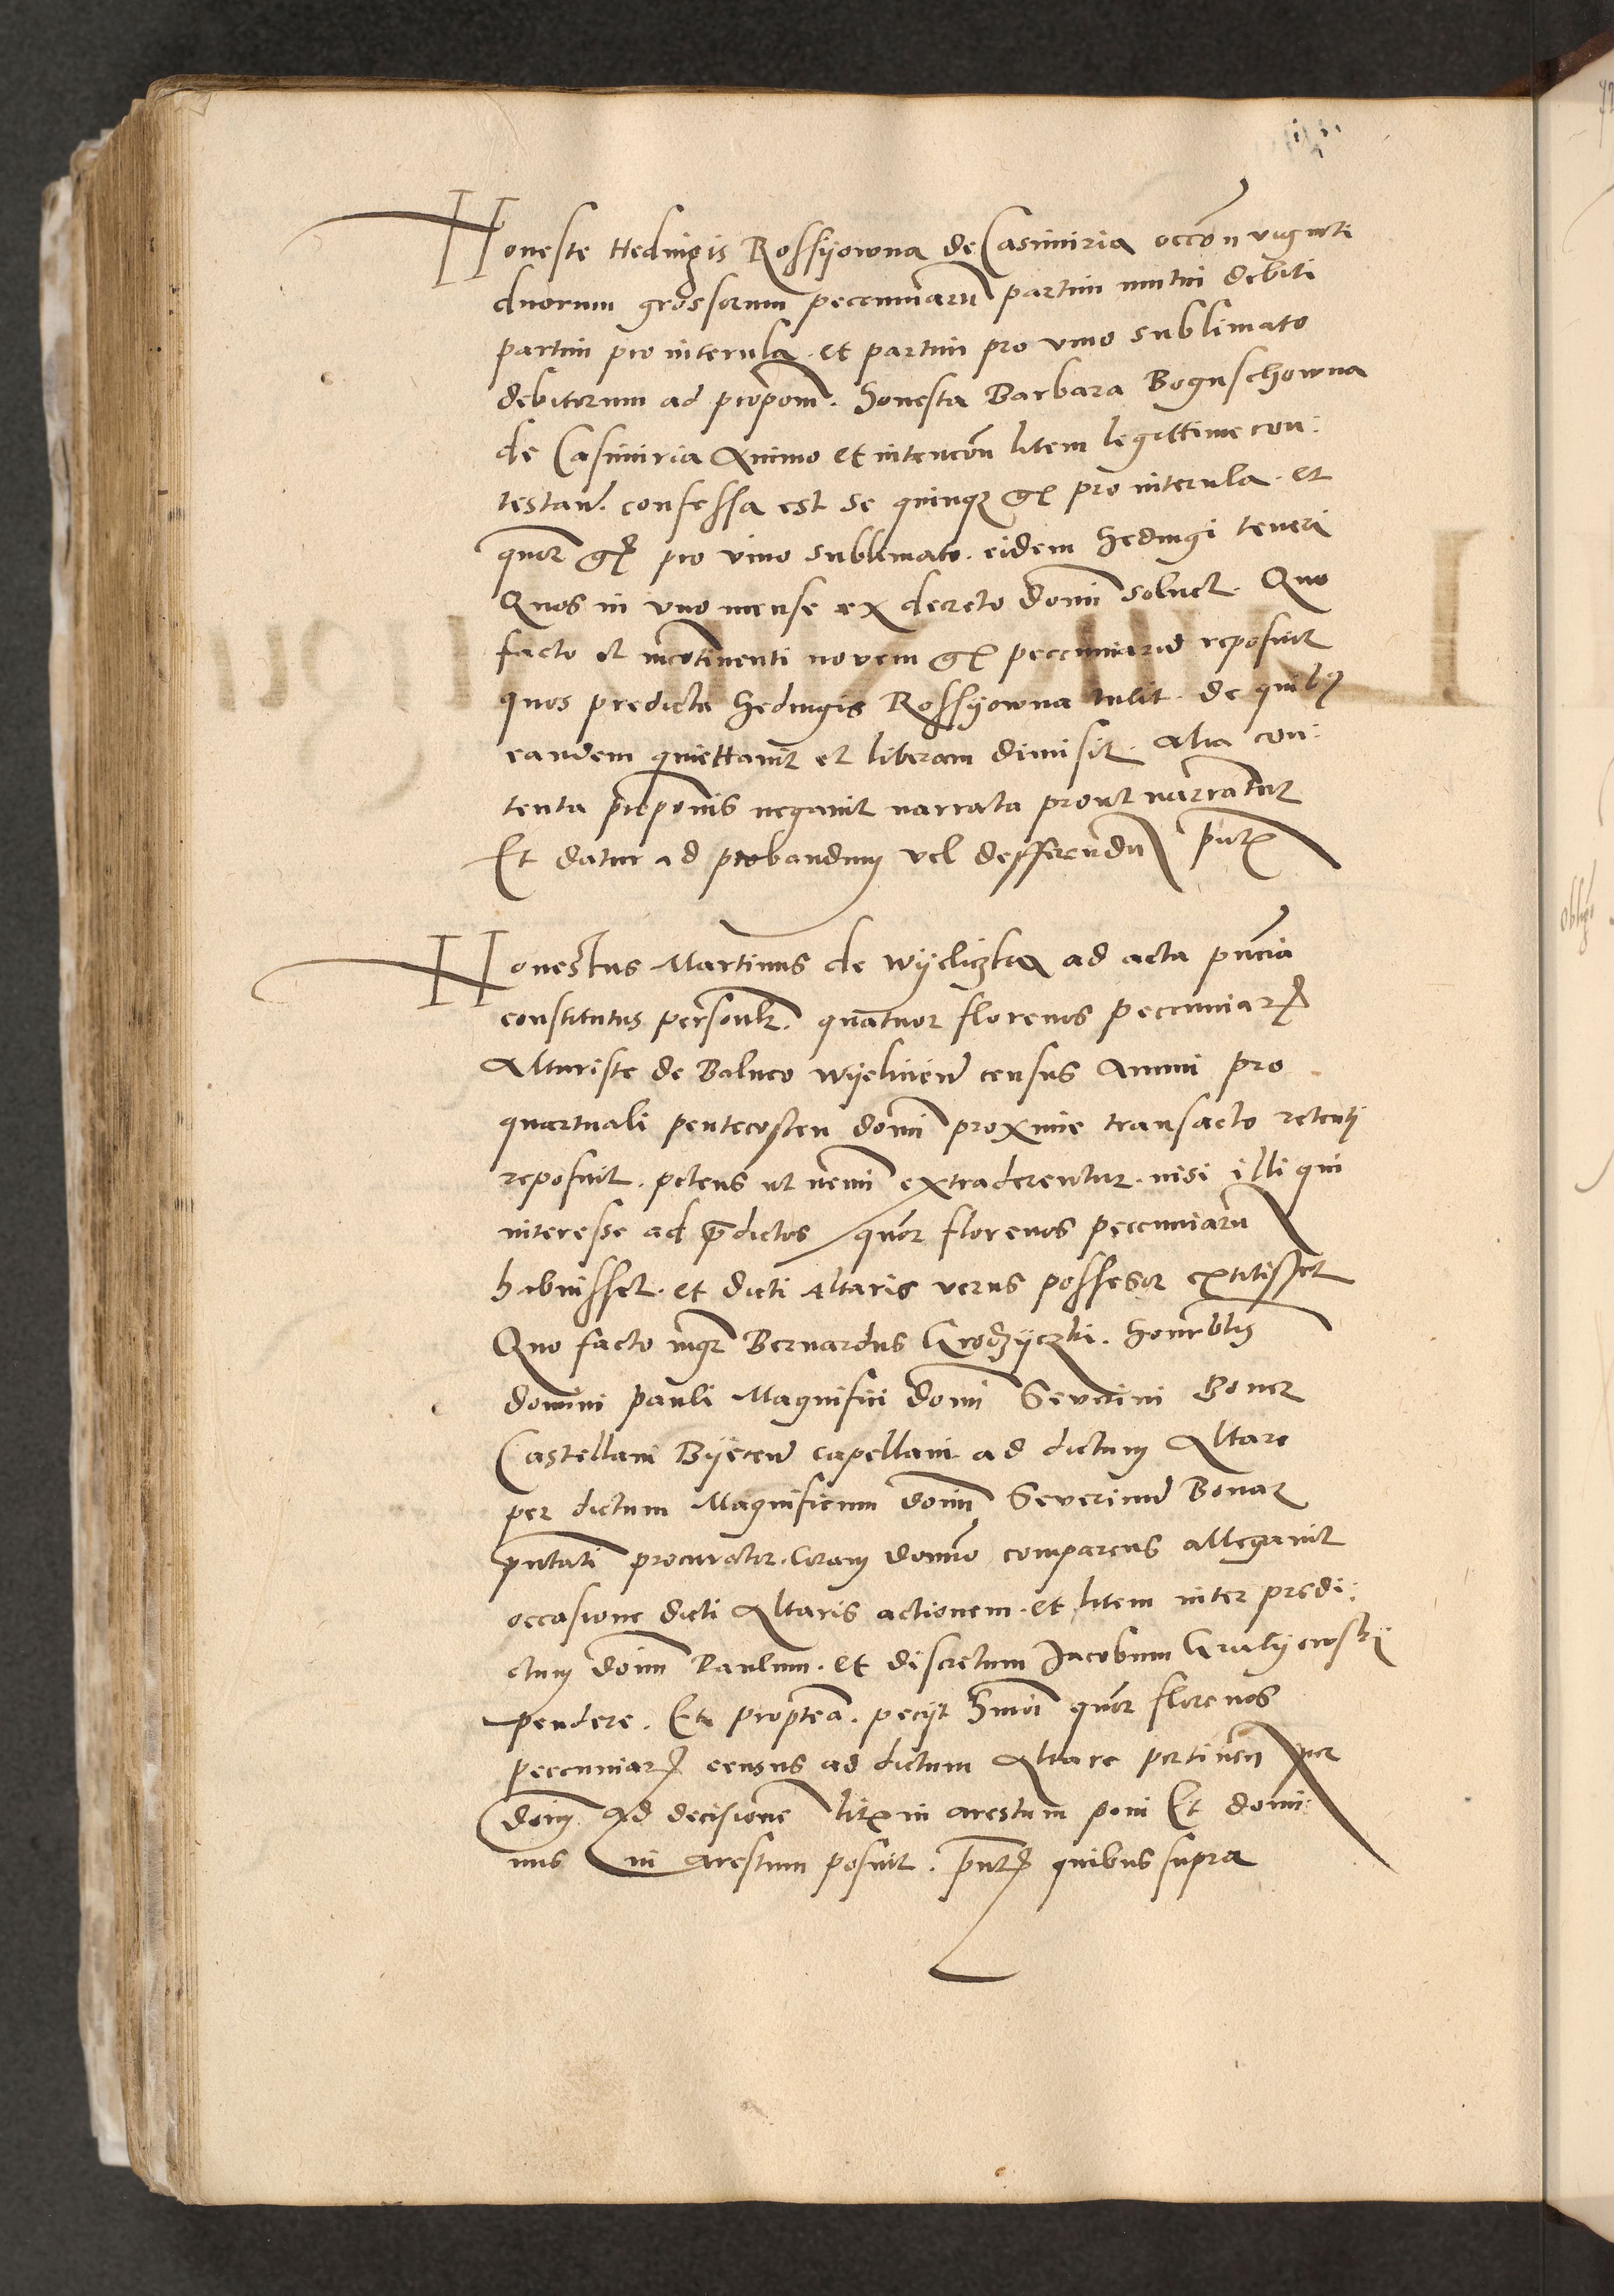 Honeste Hedwigis Rossyowna de Casimiria occõn viginti
duorum grossorum peccuniarũ partim mutui debiti
partim pro interula et partim pro vino sublimato
debitorum ad propoñ. Honesta Barbara Boguschowna
de Casimiria Animo et intencõn litem legittime con:
testañ. confessa est se quinqz gr pro interula et
quor gr pro vino sublimato eidem Hedwigi teneri
Quos in vno mense ex decreto domi soluet. Quo
facto et incõtinenti novem gr peccuniarũ reposuit
quos predicta Hedwigis Rossyowna tulit de quibz
eandem quiettauit et liberam dimisit. Alia con:
tenta propõnis negauit narrata prout narrantur
Et datur ad probandum vel defferendũ pntz
Honestus Martinus de Wyeliczka ad acta pñcia
constitutus personlr. quatuor florenos peccuniarz
Altariste de Balneo Wyelicieñ census Annui pro
quartuali pentecosten domi proxime transacto retenti
reposuit. petens ut nemi extraderentur nisi illi qui
interesse ad pdictos quor florenos peccuniarũ
habuisset et dicti altaris verus possesor extitisset
Quo facto mgr Bernardus Grodzyczki. Honrblis
domini Pauli Magnifici domi Severini Boner
Castellani Byeceñ capellani ad dictum Altare
per dictum Magnificum domi Severinũ Bonar
pntati procurator. Coram domno comparens allegauit
occasione dicti Altaris actionem et litem inter predi:
ctum domi Paulum et discretum Jacobum
pendere. Et proptea. pecyt quor florenos
peccuniarz census ad dictum Altare pertineñ per
doim ad decisione litz in arestum poni Et domi:
nus in arestum posuit. pntz quibus supra